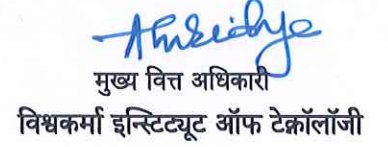 मुख्य वित्त अधिकारी
विश्वकर्मा इन्स्टिट्यूट ऑफ टेक्नॉलॉजी